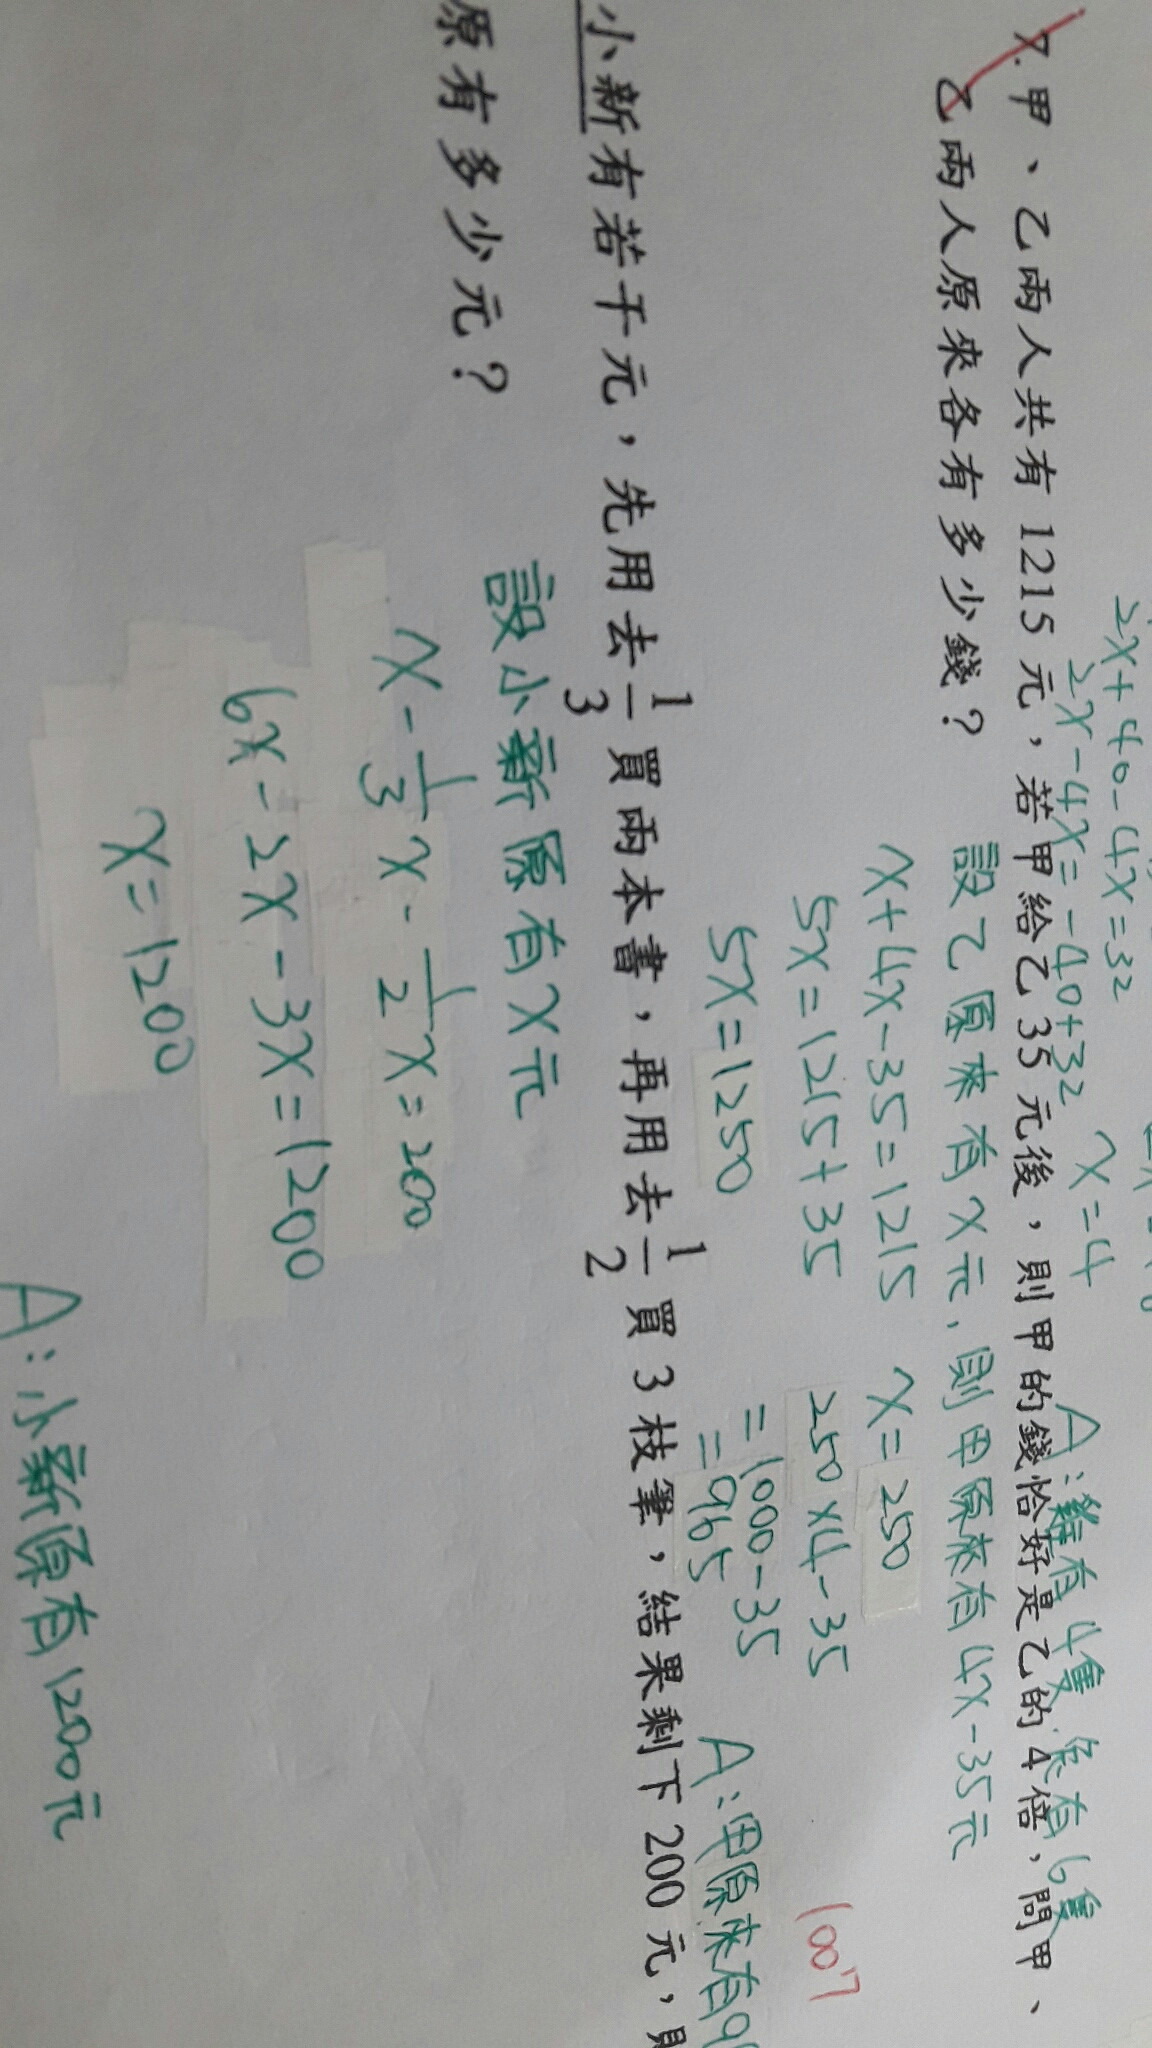 2x+40-4x=32
2x-4x=-40+32
x=4
A:雞有4隻 兔有6隻
7. 甲、乙兩人共有1215元，若甲給乙35元後，則甲的錢恰好是乙的4倍，問甲、
乙兩人原來各有多少錢？
設乙原來有x元，則甲原來有4x-35元
x+4x-35=1215
5x=1215+35
5x=1250
x=250
250×4-35
=1000-35
=965
1007
A:甲原來有9
小新有若干元，先用去1/3買兩本書，再用去1/2買3枝筆，結果剩下200元，
原有多少元？
設小新原有x元
x-1/3x-1/2x=200
6x-2x-3x=1200
x=1200
A:小新原有1200元